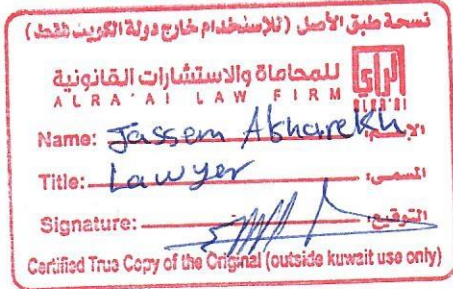 نسخة طبق الأصل (للإستخدام خارج دولة الكويت فقط)
الراي للمحاماة والاستشارات القانونية
ALRA'AI LAW FIRM ALRA'AI
Name: Jassem Alsharekh الإسم:
Title: Lawyer المسمى:
Signature: التوقيع:
Certified True Copy of the Original (outside kuwait use only)